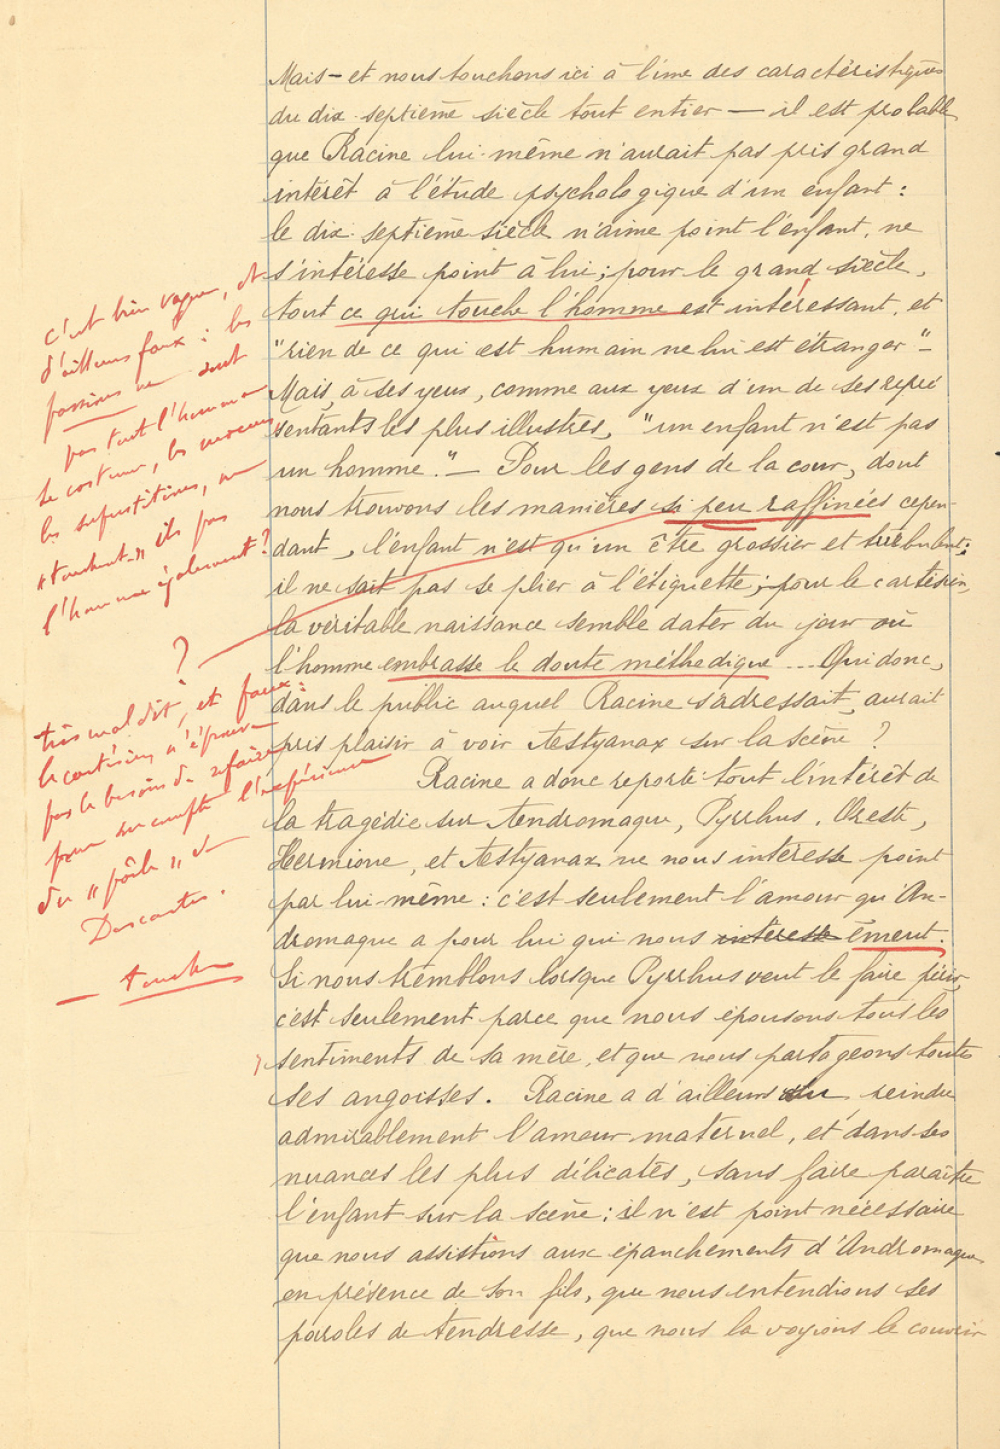 Mais – et nous touchons ici à l'une des caractéristiques
du dix-septième siècle tout entier — il est probable
que Racine lui-même n'aurait pas pris grand
intérêt à l'étude psychologique d'un enfant :
le dix-septième siècle n'aime point l'enfant, ne
s'intéresse point à lui ; pour le grand siècle,
tout ce qui touche l'homme est intéressant, et
"rien de ce qui est humain ne lui est étranger" –
Mais, à ses yeux, comme aux yeux d'un de ses repré
sentants les plus illustres, "un enfant n'est pas
un homme". — Pour les gens de la cour, dont
nous trouvons les manières si peu raffinées cepen-
dant, l'enfant n'est qu'un être grossier et turbulent ;
il ne sait pas se plier à l'étiquette ; pour le cartésien,
la véritable naissance semble dater du jour où
l'homme embrasse le doute méthodique ... Qui donc,
dans le public auquel Racine s'adressait, aurait
pris plaisir à voir Astyanax sur la scène ?
Racine a donc reporté tout l'intérêt de
la tragédie sur Andromaque, Pyrrhus, Oreste,
Hermione, et Astyanax ne nous intéresse point
par lui-même : c'est seulement l'amour qu'An-
dromaque a pour lui qui nous intéresse émeut.
Si nous tremblons lorsque Pyrrhus veut le faire périr,
c'est seulement parce que nous épousons tous les
sentiments de sa mère, et que nous partageons toutes
ses angoisses. Racine a d'ailleurs su peindre
admirablement l'amour maternel, et dans ses
nuances les plus délicates, sans faire paraître
l'enfant sur la scène : il n'est point nécessaire
que nous assistions aux épanchements d'Andromaque
en présence de son fils, que nous entendions ses
paroles de tendresse, que nous la voyions le couvrir
c'est bien vague, et
d'ailleurs faux : les
passions ne sont
pas tout l'homme
Le costume, les mœurs
les superstitions, ne
"touchent-" ils pas
l'homme également ?
?
très mal dit, et faux :
le cartésien n'éprouve
pas le besoin de refaire
pour son compte l'expérience
du "poêle" de
Descartes.
— touche